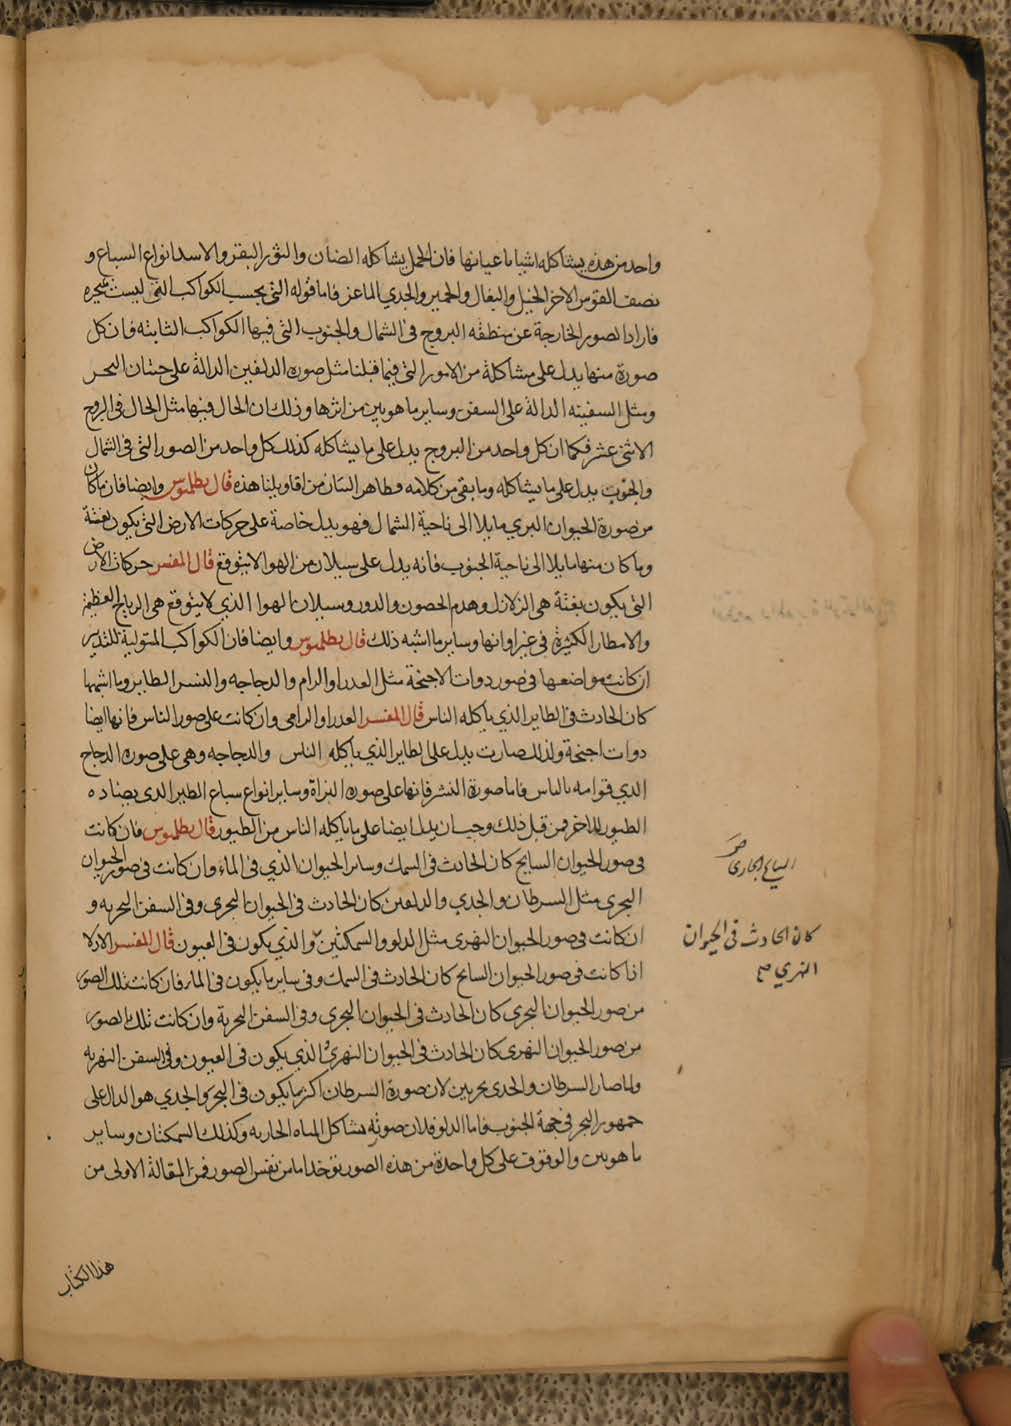 واحد من هذه يشاكله اشيا باعيانها فان الحمل يشاكله الضان والثور البقر والاسد انواع السباع و
نصف القوس الاخر الخيل والبغال والحمير والجدي الماعز فاما قوله التي بحسب الكواكب التي ليست متحيره
فاراد الصور الخارجة عن منطقه البروج في الشمال والجنوب التي فيها الكواكب الثابته فان كل
صورة منها يدل على مشاكلة من الامور التي فيما قبلنا مثل صوره الدلفين الدالة على حيتان البحر
ومثل السفينه الدالة على السفن وساير ما هو بين من اثرها وذلك ان الحال فيها مثل الحال في البروج
الاثني عشر فكما ان كل واحد من البروج يدل على ما يشاكله كذلك كل واحد من الصور التي في الشمال
والجنوب يدل على ما يشاكله وما بقي من كلامه فظاهر البيان من اقاويلنا هذه قال بطلميوس وايضا فان ما كان
من صورة الحيوان البري مايلا الى ناحية الشمال فهو يدل خاصة على حركات الارض التي يكون بغتة
وما كان منها مايلا الى ناحية الجنوب فانه يدل على سيلان من الهوا لا يتوقع قال المفسر حركات الارض
التي يكون بغتة هي الزلازل وهدم الحصون والدور وسيلان الهوا الذي لا يتوقع هي الرياح العظيمة
والامطار الكثيرة في غير اوانها وساير ما اشبه ذلك قال بطلميوس وايضا فان الكواكب المتولية للتدبير
ان كانت مواضعها في صور ذوات الاجنحة مثل العذرا والرام والدجاجه والنسر الطاير وما اشبهها
كان الحادث في الطاير الذي ياكله الناس قال المفسر العذرا والرامى وان كانت على صور الناس فانها ايضا
ذوات اجنحة ولذلك صارت يدل على الطاير الذي ياكله الناس والدجاجه وهى على صوره الدجاج
الذي قوامه بالناس فاما صورة النسر فانها على صوره البزاة وساير انواع سباع الطير الذي يصاد ه
الطيور الاخر فمن قبل ذلك وجب ان يدل ايضا على ما ياكله الناس من الطيور قال بطلميوس فان كانت
في صور الحيوان السابح كان الحادث في السمك وساير الحيوان الذي في الماء وان كانت في صور الحيوان
البحري مثل السرطان والجدي والدلفين كان الحادث في الحيوان البحري وفي السفن البحريه و
ان كانت في صور الحيوان النهري مثل الدلو والسمكتين والذي يكون في العيون قال المفسر
اذا كانت في صور الحيوان السابح كان الحادث في السمك وفي ساير ما يكون في الماء فان كانت تلك الصور
من صور الحيوان البحري كان الحادث في الحيوان البحري وفي السفن البحرية وان كانت تلك الصور
من صور الحيوان النهري كان الحادث في الحيوان النهري الذي يكون في العيون وفي السفن النهريه
ولما صار السرطان والجدي بحريين لان صورة السرطان اكثر ما يكون في البحر والجدي هو الدال على
جمهور البحر في جهة الجنوب فاما الدلو فلان صوته يشاكل المياه الجاريه وكذلك السمكتان وساير
ما هو بين والوقوف على كل واحدة من هذه الصور يوخذ اما من نفس الصور فمن المقالة الاولى من
هذا الكتاب
كان الحادث في الحيوان
النهري صح